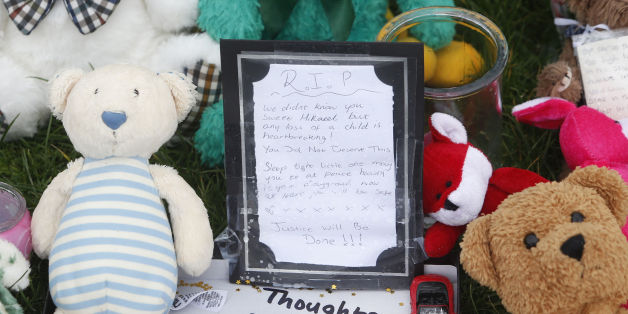 R.I.P
We didnt know you
Sweet Mikaeel but
any loss of a child is
heartbreaking!
You Did Not Deserve This
Sleep tight little one may
you be at peace heaven
is your playground now
we know you'll be safe
x x x x x x x
Justice Will Be
Done!!!
Thoughts